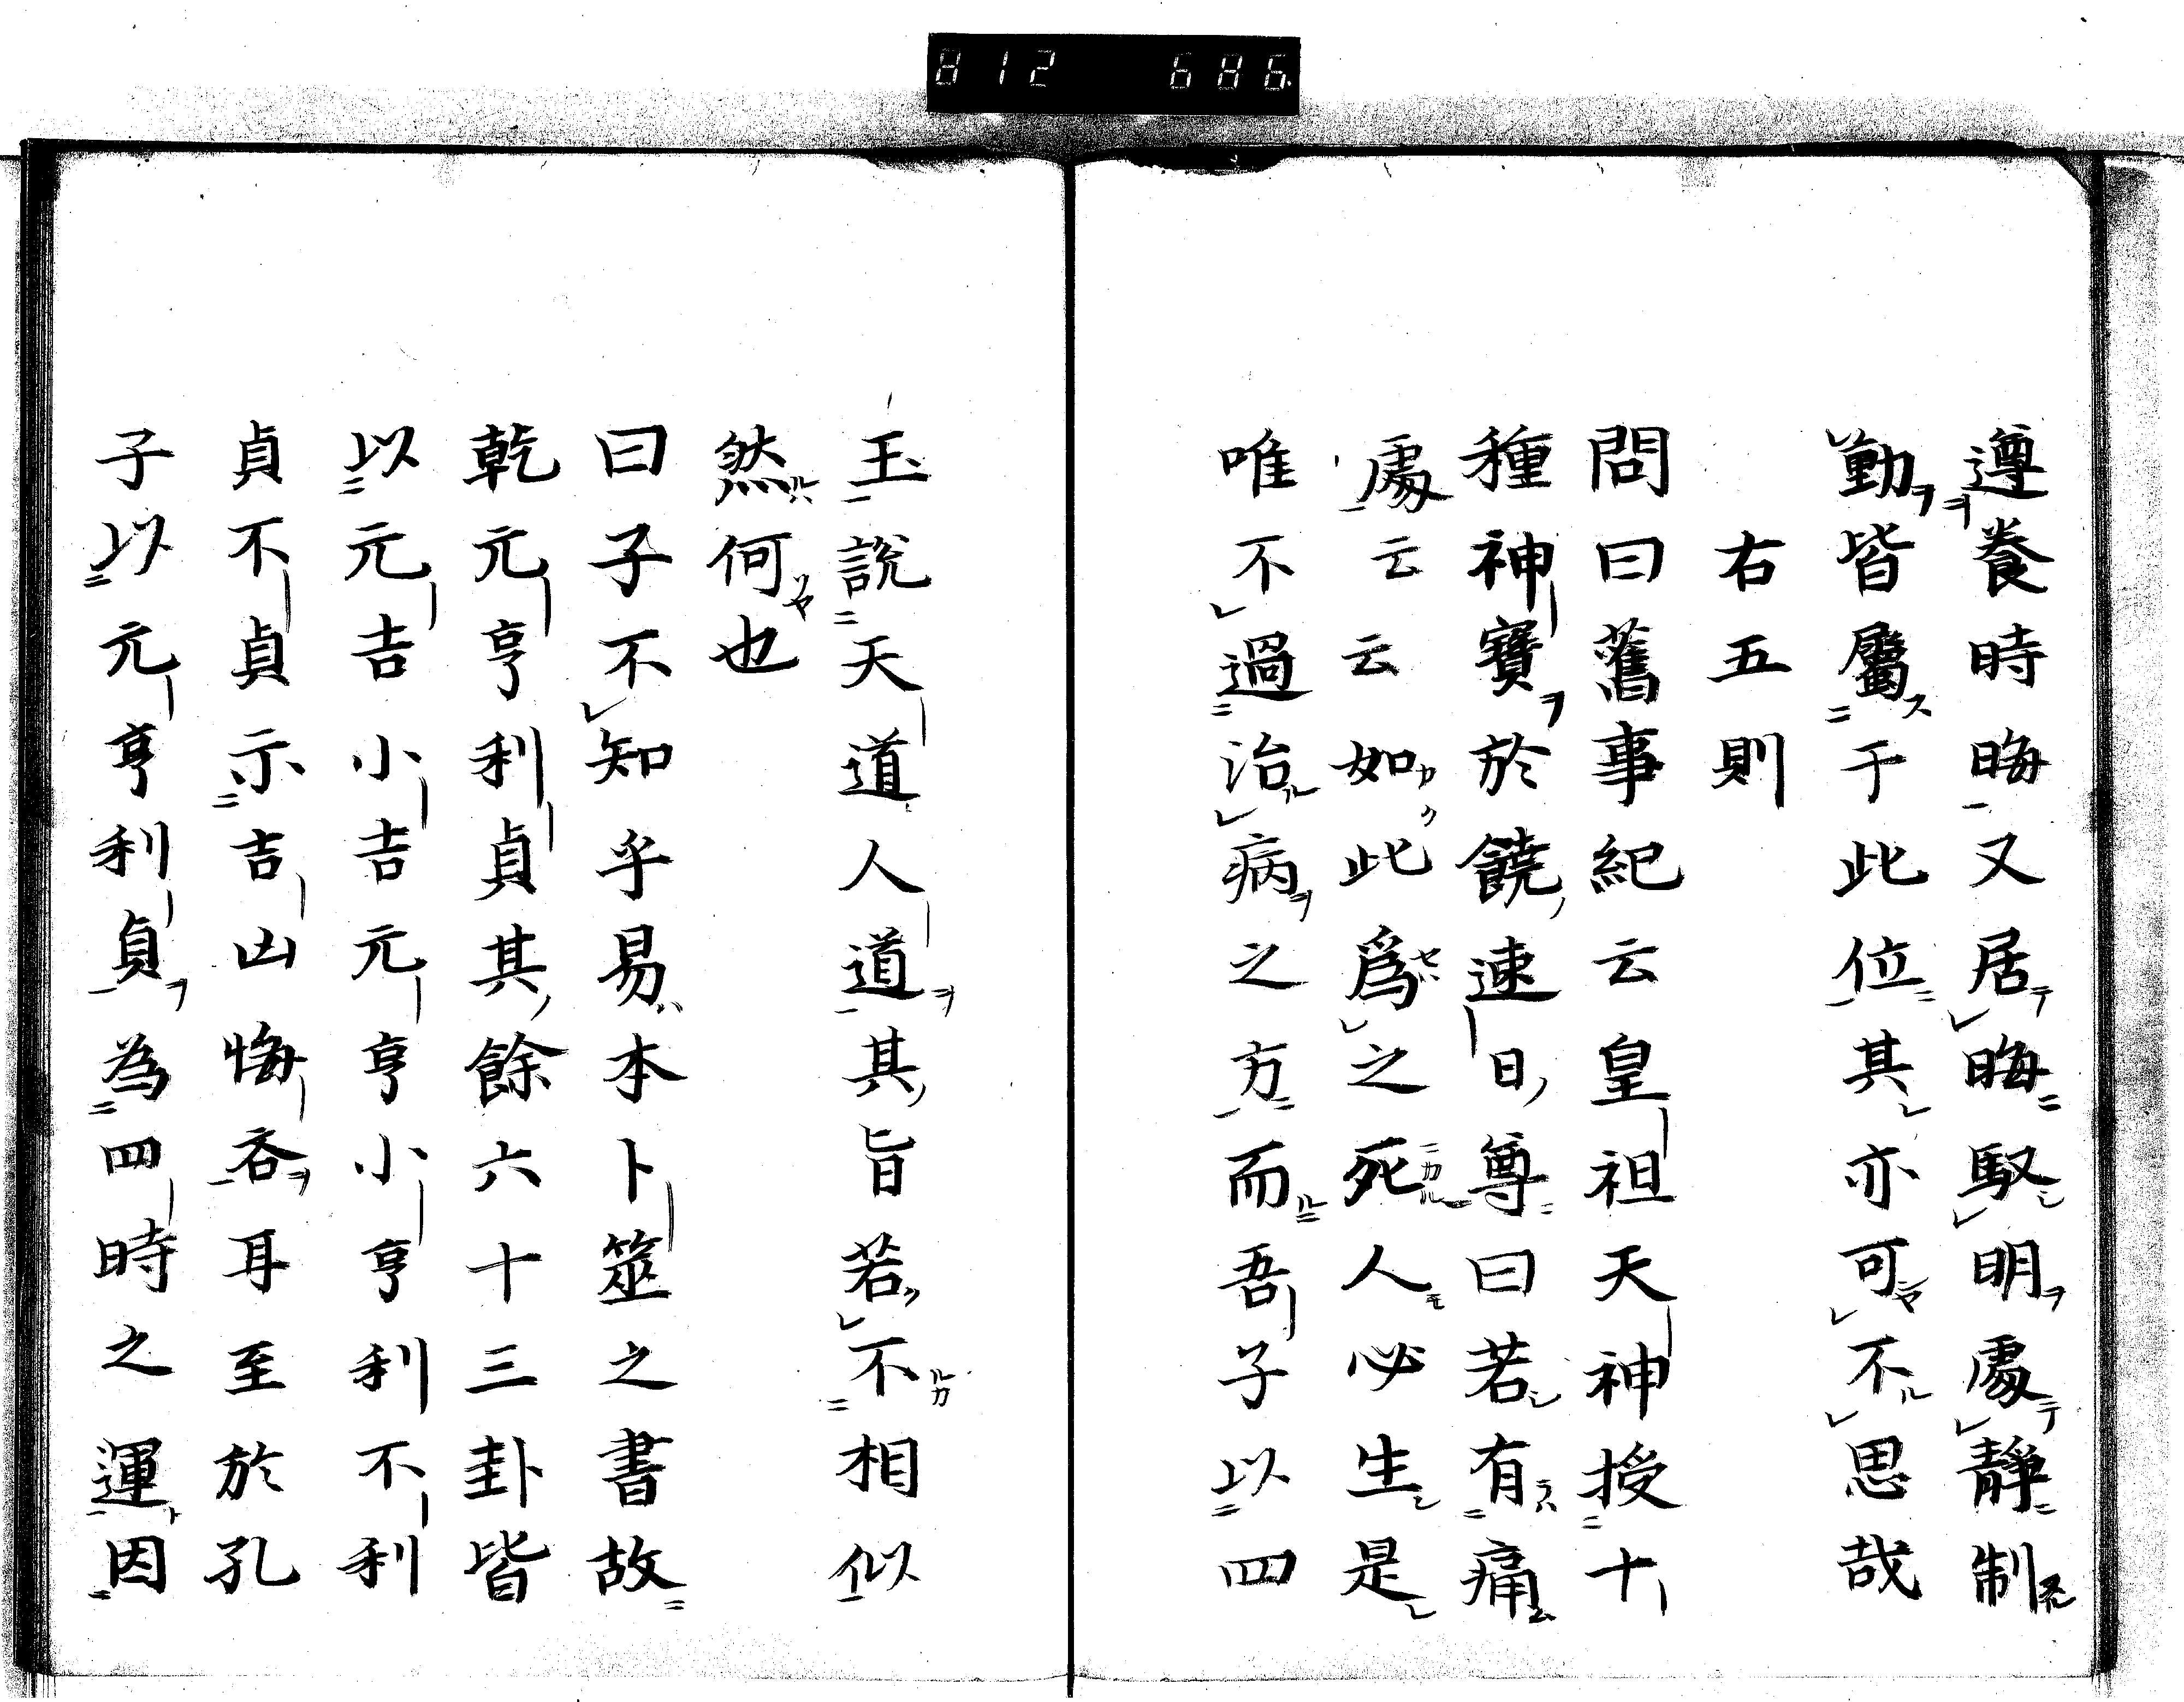 812 686
遵養時晦又居晦馭明處静制
勤皆屬于此位其亦可不思哉
右五則
問曰舊事紀云皇祖天神授十
種神寶於饒速日尊曰若有痛
處云云如此爲之死人必生是
唯不過治病之方而吾子以四
玉說天道人道其旨若不相似
然何也
曰子不知乎易本卜筮之書故
乾元亨利貞其餘六十三卦皆
以元吉小吉元亨小亨利不利
貞不貞示吉凶悔吝耳至於孔
子以元亨利貞為四時之運因